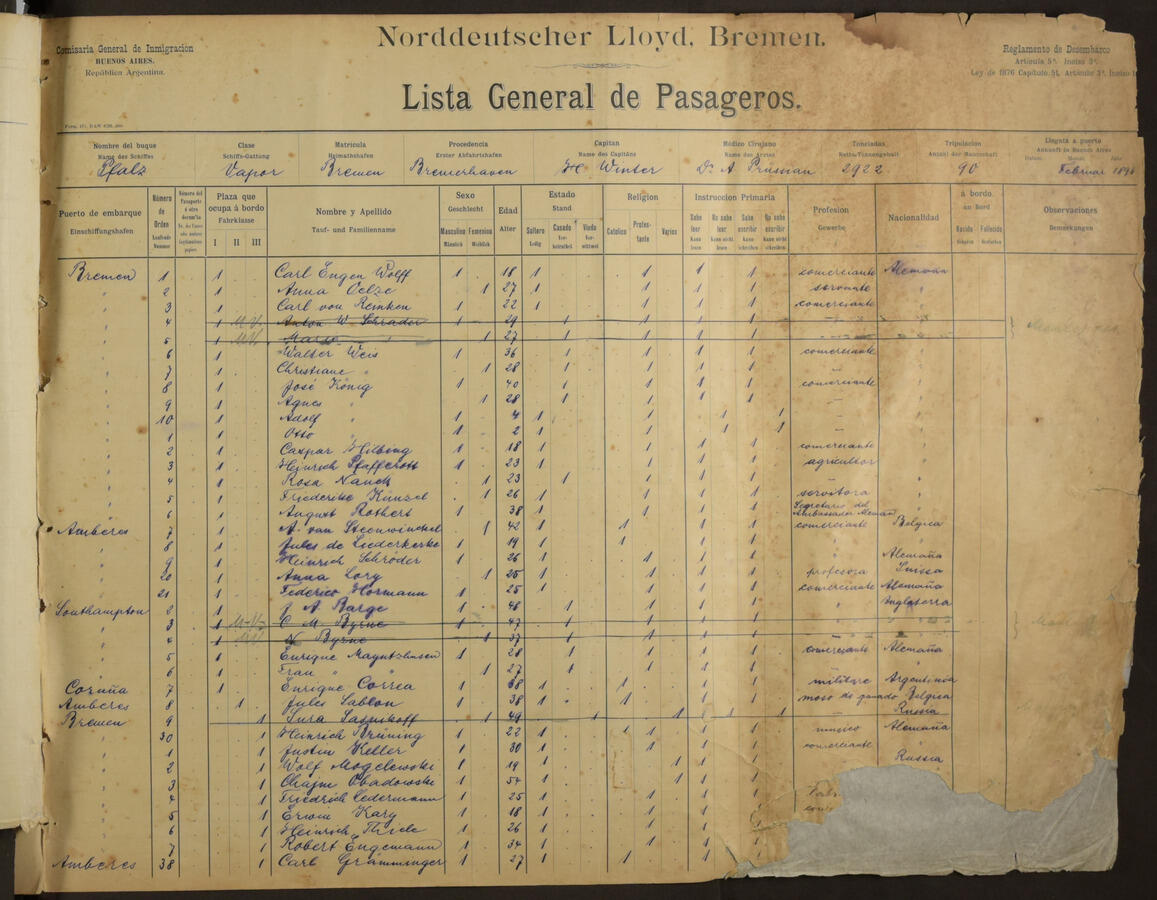 Norddeutscher Lloyd, Bremen.
Comisaria General de Inmigracion
BUENOS AIRES.
República Argentina.
Reglamento de Desembarco
Artículo 5º. Inciso 3º.
Ley de 1876 Capítulo 51, Artículo 3º. Inciso 1
Lista General de Pasageros.
Nombre del buque Clase Matricula Procedencia Capitan Médico Cirujano Toneladas Tripulacion Llegata a puerto
Name des Schiffes Schiffs-Gattung Heimathshafen Erster Abfahrtshafen Name des Capitäns Name des Arztes Netto-Tonnengehalt Anzahl der Mannschaft Ankunft in Buenos Aires
Pfalz Vapor Bremen Bremerhaven H. Winter Dr. A Prüsman 2922 90 Februar
Puerto de embarque Número de Orden Plaza que ocupa á bordo Nombre y Apellido Sexo Edad Estado Religion Instruccion Primaria Profesion Nacionalidad á bordo Observaciones
Einschiffungshafen Laufende Nummer Fahrklasse Tauf- und Familienname Geschlecht Alter Stand Gewerbe an Bord Bemerkungen
I II III Masculino Femenino Soltero Casado Viudo Catolico Protestante Varios Sabe leer No sabe leer Sabe escribir No sabe escribir Nacido Fallecido
Männlich Weiblich Ledig
Bremen 1 1 Carl Eugen Wolff 1 18 1 1 1 1 comerciante Alemaña
" 2 1 Anna Oelze 1 27 1 1 1 1 servante "
" 3 1 Carl von Reinken 1 22 1 1 1 1 comerciante "
" 4 1 Anton W. Schrader 1 29 1 1 1 1
" 5 1 " 1 27 1 1 1 1
" 6 1 Walter Weis 1 36 1 1 1 1 comerciante "
" 7 1 Christiane " 1 28 1 1 1 1 "
" 8 1 José König 1 40 1 1 1 1 comerciante "
" 9 1 Agnes " 1 28 1 1 1 1 "
" 10 1 Adolf " 1 4 1 1 1 1 "
" 1 1 Otto " 1 2 1 1 1 1 "
" 2 1 Caspar Hilbing 1 18 1 1 1 1 comerciante "
" 3 1 Heinrich Pfaffcrott 1 23 1 1 1 1 agricultor "
" 4 1 Rosa Nauck 1 23 1 1 1 1 "
" 5 1 Friederike Künzel 1 26 1 1 1 1 servitora "
" 6 1 August Rothert 1 38 1 1 1 1 Secretario del Ambassador Aleman "
Amberes 7 1 A. van Steenwinckel 1 42 1 1 1 1 comerciante Belgica
" 8 1 Jules de Liederkerke 1 19 1 1 1 1 " "
" 9 1 Heinrich Schröder 1 26 1 1 1 1 " Alemaña
" 20 1 Anna Lory 1 25 1 1 1 1 profesora Suissa
" 21 1 Federico Hormann 1 25 1 1 1 1 comerciante Alemaña
Southampton 2 1 J A Barge 1 48 1 1 1 1 " Inglaterra
" 3 1 C M Byrne 1 47 1 1 1 1
" 4 1 N Byrne 1 37 1 1 1 1
" 5 1 Enrique Mayntzhusen 1 28 1 1 1 1 comerciante Alemaña
" 6 1 Frau " 1 27 1 1 1 1 "
Coruña 7 1 Enrique Correa 1 1 1 1 1 militare Argentinia
Amberes 8 1 Jules Sablon 1 38 1 1 1 1 Belgica
Bremen 9 1 1 49 1 1 1 1 Russia
" 30 1 Heinrich Brüning 1 22 1 1 1 1 musico Alemaña
" 1 1 Justin Keller 1 30 1 1 1 1 comerciante "
" 2 1 Wolf Mogelewski 1 19 1 1 1 1 Russia
" 3 1 Chajm Obadowske 1 54 1 1 1 1
" 4 1 Friedrich Ledermann 1 25 1 1 1 1
" 5 1 Erwin Kary 1 18 1 1 1 1
" 6 1 Heinrich Thiele 1 26 1 1 1 1
" 7 1 Robert Engemann 1 34 1 1 1
Amberes 38 1 Carl Gramminger 1 27 1 1 1